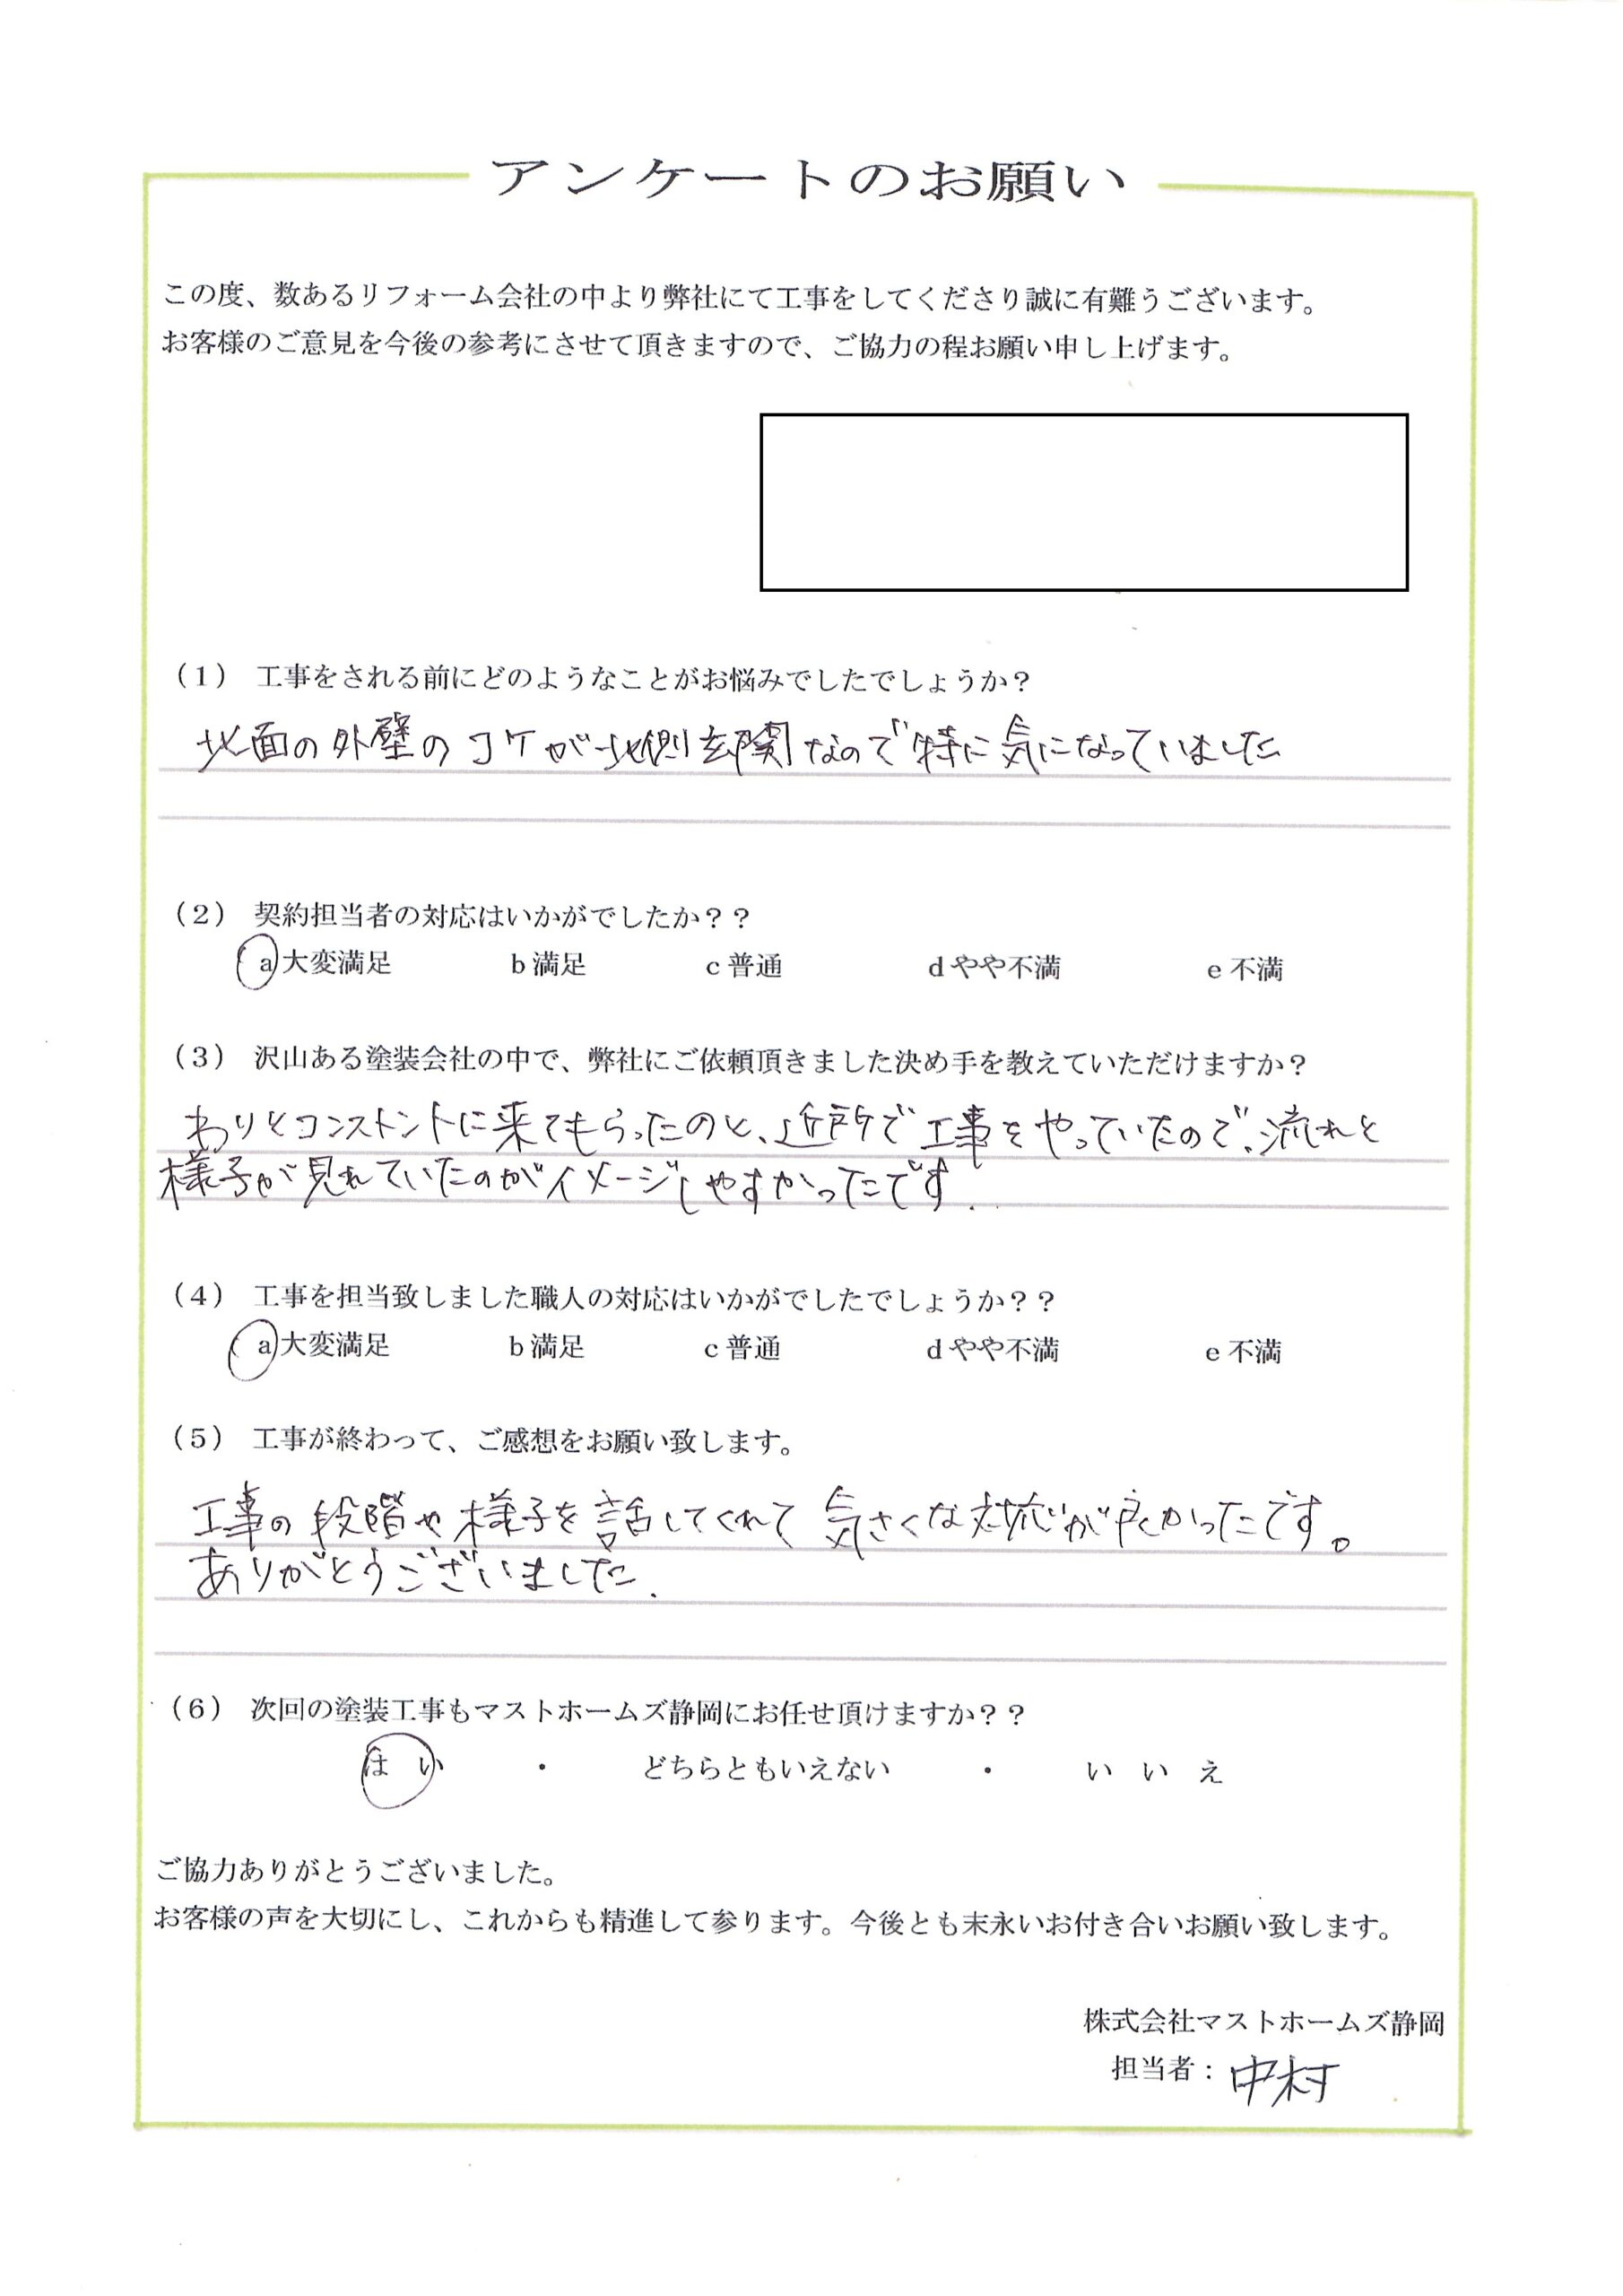 アンケートのお願い
この度、数あるリフォーム会社の中より弊社にて工事をしてくださり誠に有難うございます。
お客様のご意見を今後の参考にさせて頂きますので、ご協力の程お願い申し上げます。
（1） 工事をされる前にどのようなことがお悩みでしたでしょうか？
北面の外壁のコケが北側玄関なので特に気になっていました
（2） 契約担当者の対応はいかがでしたか？？
a大変満足 b満足 c普通 dやや不満 e不満
（3） 沢山ある塗装会社の中で、弊社にご依頼頂きました決め手を教えていただけますか？
わりとコンストントに来てもらったのと、近所で工事をやっていたので、流れと
様子が見れていたのがイメージしやすかったです.
（4） 工事を担当致しました職人の対応はいかがでしたでしょうか？？
a大変満足 b満足 c普通 dやや不満 e不満
（5） 工事が終わって、ご感想をお願い致します。
工事の段階や様子を話してくれて気さくな対応が良かったです。
ありがとうございました.
（6） 次回の塗装工事もマストホームズ静岡にお任せ頂けますか？？
はい ・ どちらともいえない ・ いいえ
ご協力ありがとうございました。
お客様の声を大切にし、これからも精進して参ります。今後とも末永いお付き合いお願い致します。
株式会社マストホームズ静岡
担当者：中村